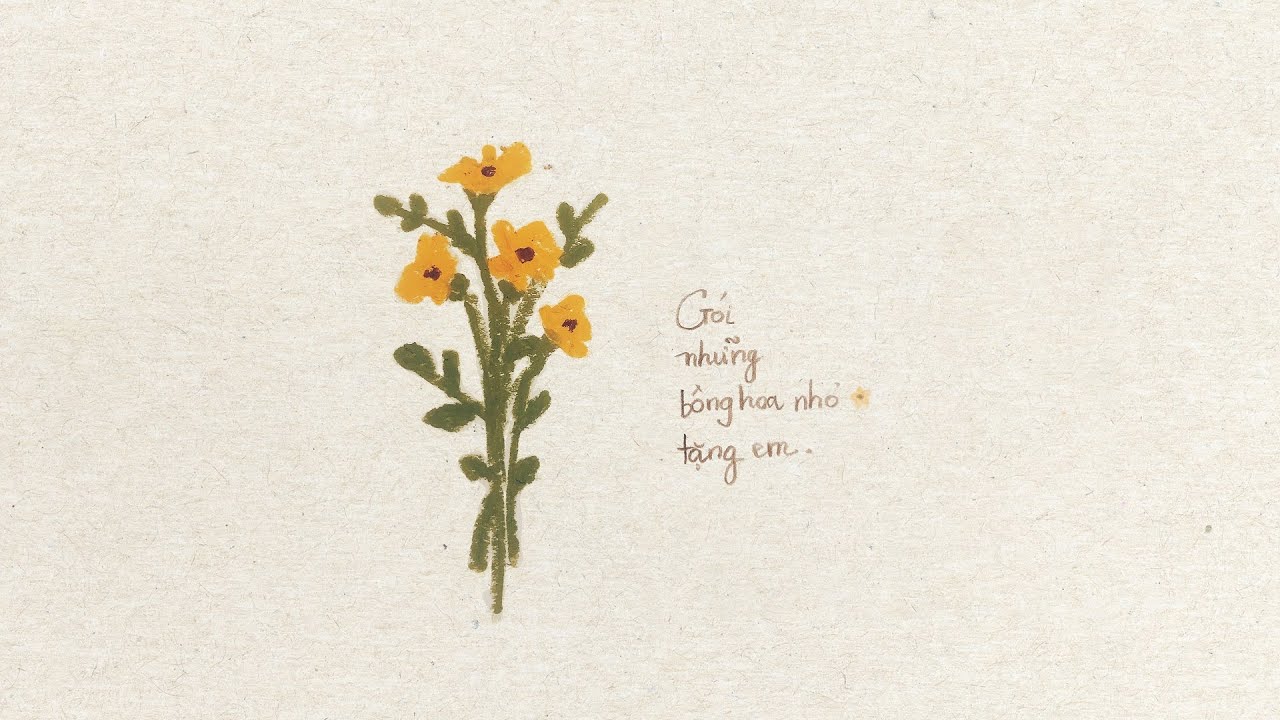 Gói
những
bông hoa nhỏ
tặng em.